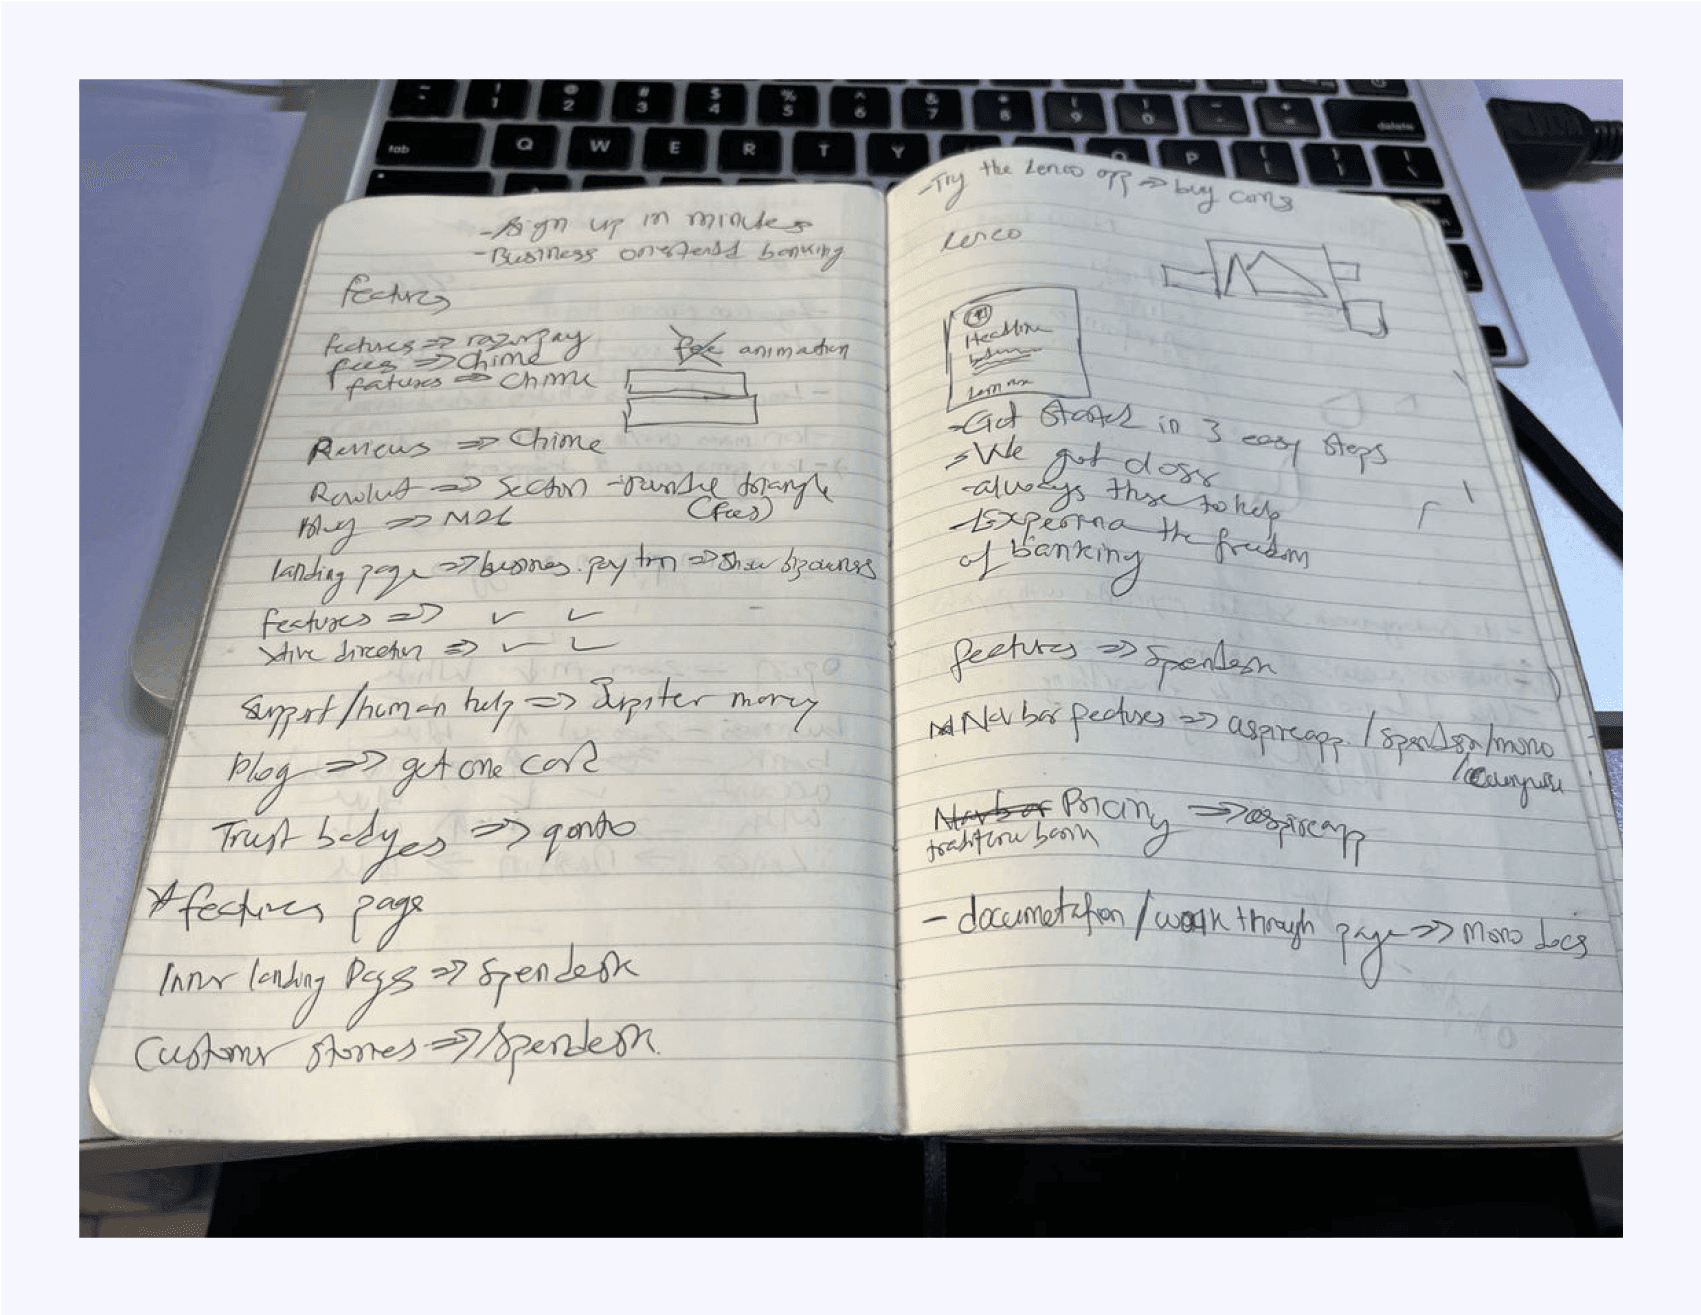 - Sign up in minutes
- Business oriented banking
features
features => razorpay
fees => Chime
features => Chime
animation
Reviews => Chime
Revolut => Section - rounded triangle
(fees)
Blog =>
landing page => business. paytm => show
features =>
direction =>
Support/human help => Jupiter money
blog => get one card
Trust badges => qonto
features page
Inner landing Pages => Spendesk
Customer stories => Spendesk.
- Try the Lenco app => buy coins
Lenco
Headline
- Get started in 3 easy steps
- We got
- always there to help
- Experience the freedom
of banking
features => Spendesk
Nav bar features => aspireapp / Spendesk/mono
Navbar Pricing => aspireapp
bank
- documetation/walk through page => Mono docs
tab
Q W E R T Y P
1 2 3 4 5 6 7 8 9 0
delete